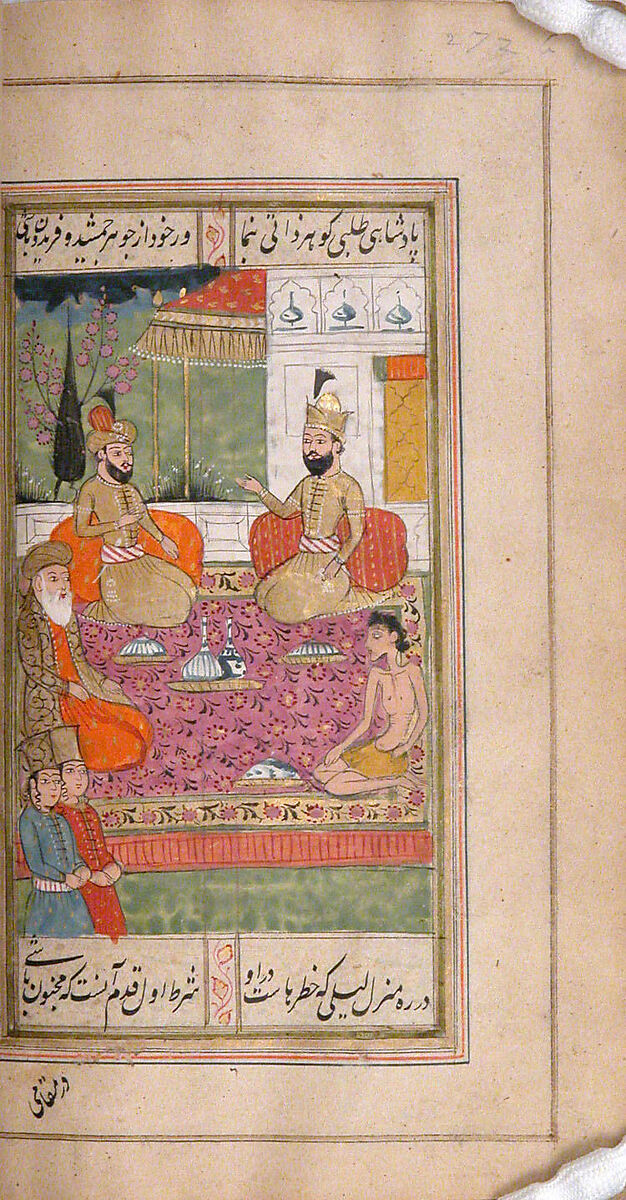 پادشاهی طلبی کوهر ذاتی نما ور خود از جوهر جمشید و فریدون باشی
در ره منزل لیلی که خطرهاست در او شرط اول قدم آنست که مجنون باشی
در مقامی